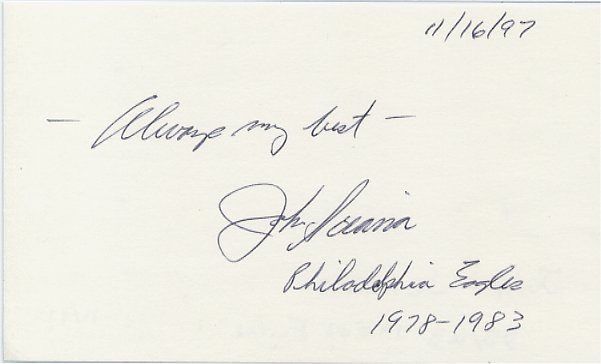 11/16/97
— Always my best —
John Sciarra
Philadelphia Eagles
1978-1983